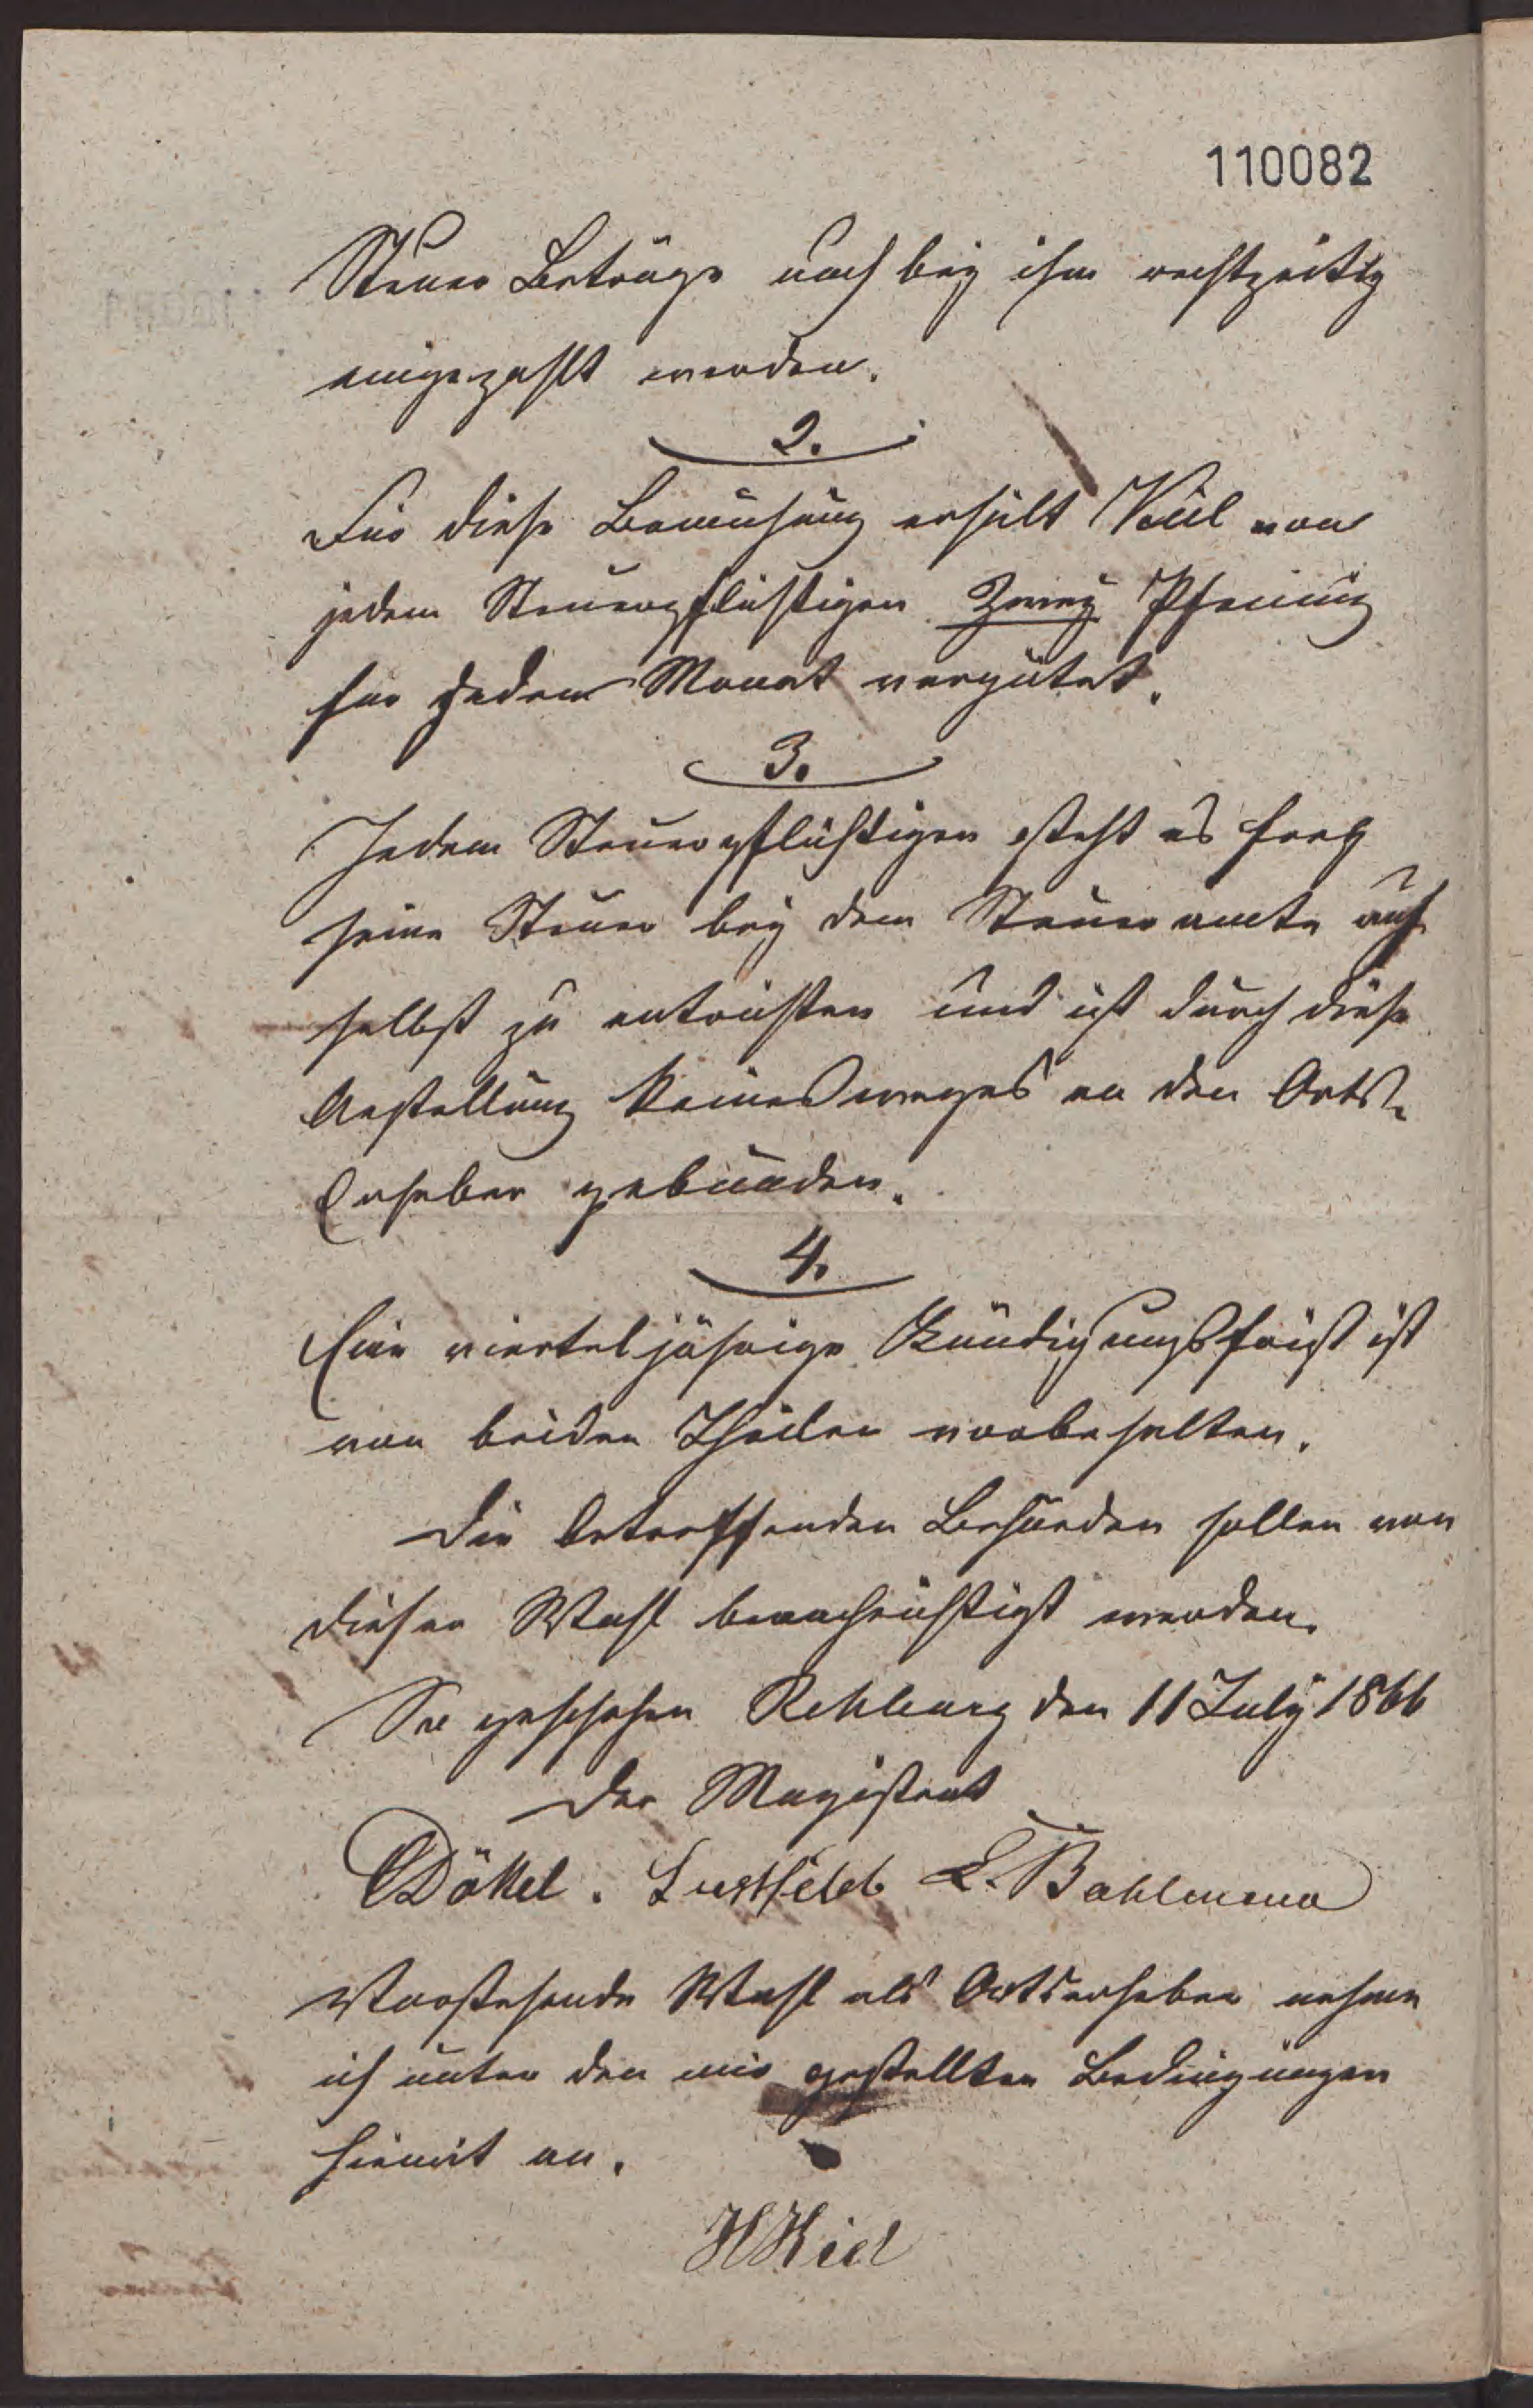 110082
Steuer Beträge auch bey ihm rechtzeitig
eingezahlt werden.
2.
Für diese Bemühung erhält Kiel von
jedem Steuerpflichtigen Zwey Pfennig
für jeden Monat vergütet.
3.
Jedem Steuerpflichtigen steht es frey
seine Steuer bey dem Steueramte auch
selbst zu entrichten und ist durch diese
Anstellung keinesweges an den Orts-
Erheber gebunden.
4.
Eine vierteljährige Kündigungsfrist ist
von beiden Theilen vorbehalten.
Die betreffenden Behörden sollen von
dieser Wahl benachrichtigt werden.
So geschehen Rehburg den 11 July 1866
Der Magistrat
Döktel. Lustfeld L. Bahlmann
Vorstehende Wahl als Ortserheber nehme
ich unter den mir gestellten Bedingungen
hiemit an.
H Kiel